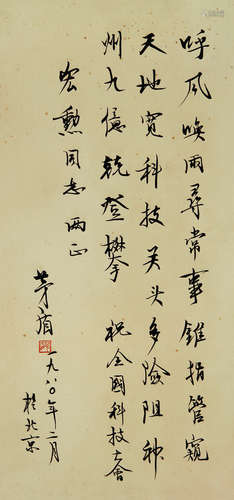 呼风唤雨寻常事锥指管窥
天地宽科技关头多险阻神
州九億競登攀 祝全國科技大會
宏勳同志两正
茅盾
一九八〇年二月
於北京